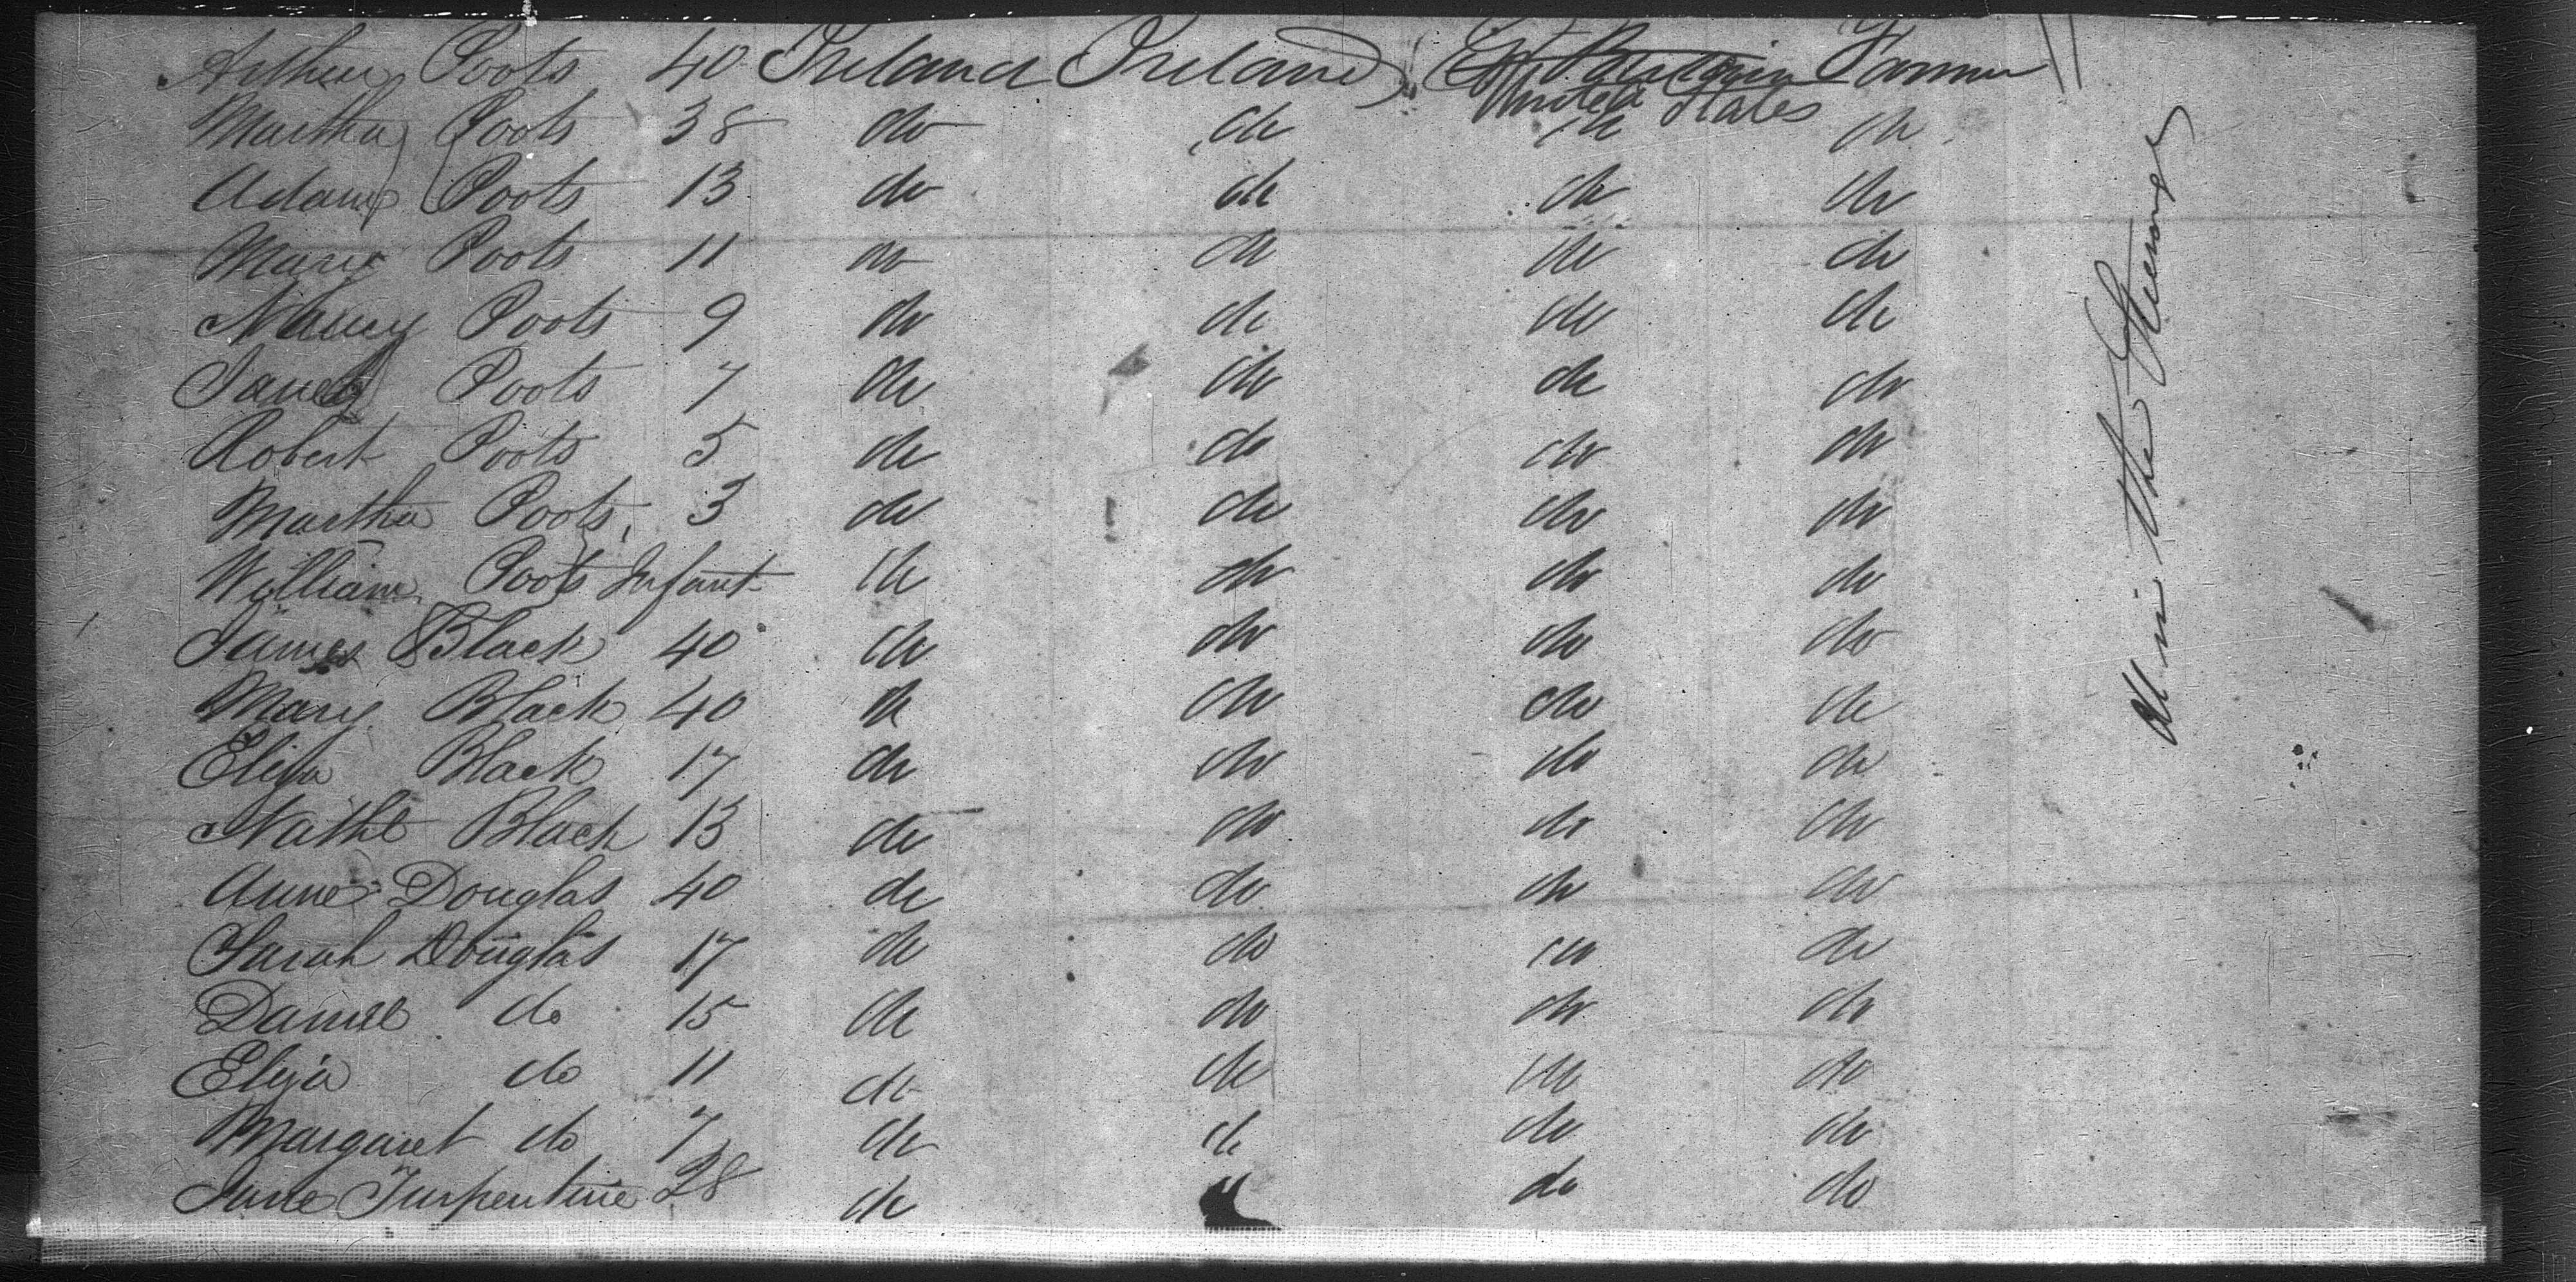 Arthur Poots 40 Ireland Ireland Gt Britain Farmer
United States
Martha Poots 38 do do do do
Adam Poots 13 do do do do
Mary Poots 11 do do do do
Nancy Poots 9 do do do do
Poots 7 do do do do
Robert Poots 5 do do do do
Martha Poots 3 do do do do
William Poots Infant do do do do
James Black 40 do do do do
Mary Black 40 do do do do
Eliza Black 17 do do do do
Nathl Black 13 do do do do
Anne Douglas 40 do do do do
Sarah Douglas 17 do do do do
Daniel do 15 do do do do
Eliza do 11 do do do do
Margaret do 7 do do do do
Jane Turpentine 28 do do do
All in the Steerage